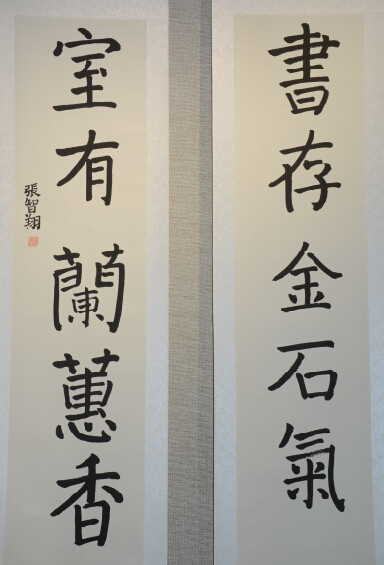 書存金石氣
室有蘭蕙香
張智翔